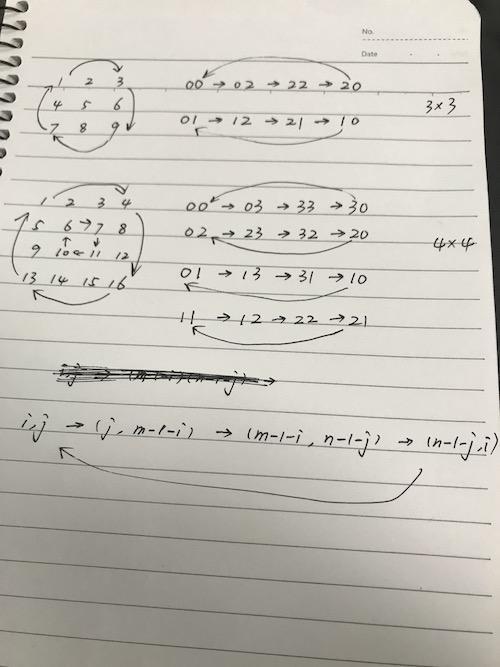 No.
Date . .
1 2 3 00 → 02 → 22 → 20
4 5 6 3×3
7 8 9 01 → 12 → 21 → 10
1 2 3 4 00 → 03 → 33 → 30
5 6 → 7 8 02 → 23 → 32 → 20
4×4
9 10 ← 11 12
13 14 15 16 01 → 13 → 31 → 10
11 → 12 → 22 → 21
i,j → (j, m-1-i) → (m-1-i, n-1-j) → (n-1-j, i)